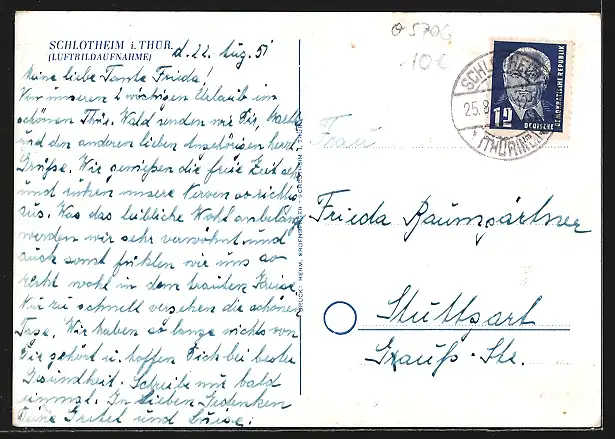 SCHLOTHEIM i. THÜR.
(LUFTBILDAUFNAHME)
d. 22. Aug. 51
Meine liebe Tante Frieda!
Von unserem 2 wöchigen Urlaub im
schönen Thür. Wald senden wir Dir,
und den anderen lieben Angehörigen herzl.
Grüße. Wir genießen die freie Zeit sehr
und ruhen unsere Nerven so richtig
aus. Was das leibliche Wohl anbelangt
werden wir sehr verwöhnt und
auch sonst fühlen wir uns so
recht wohl in dem trauten Kreise.
Nur zu schnell vergehen die schönen
Tage. Wir haben so lange nichts von
Dir gehört u. hoffen Dich bei bester
Gesundheit. Schreibe mir bald
einmal. In lieben Gedenken
Deine Gretel und Luise.
DRUCK: HERM. SCHLOTHEIM I. THÜR.
Θ 570G
10€
12
DEUTSCHE
DEMOKRATISCHE REPUBLIK
SCHLOTHEIM
25.8
(THÜRINGEN)
Frau
Frieda Baumgärtner
Stuttgart
Str.